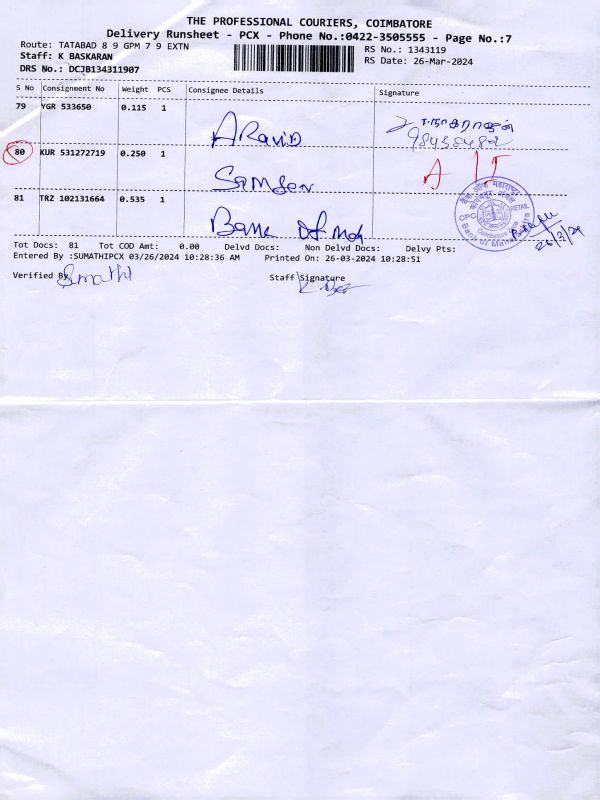 THE PROFESSIONAL COURIERS, COIMBATORE
Delivery Runsheet - PCX - Phone No.:0422-3505555 - Page No.:7
Route: TATABAD 8 9 GPM 7 9 EXTN
RS No.: 1343119
Staff: K BASKARAN
RS Date: 26-Mar-2024
DRS No.: DCJB134311907
S No Consignment No Weight PCS Consignee Details Signature
79 YGR 533650 0.115 1
ARavinD
9843584802
80 KUR 531272719 0.250 1
Samson
81 TRZ 102131664 0.535 1
Bank of Mah
CPC RETAIL
Bank of Maharashtra
26/3/24
Tot Docs: 81 Tot COD Amt: 0.00 Delvd Docs: Non Delvd Docs: Delvy Pts:
Entered By :SUMATHIPCX 03/26/2024 10:28:36 AM Printed On: 26-03-2024 10:28:51
Verified By Sumathi Staff Signature